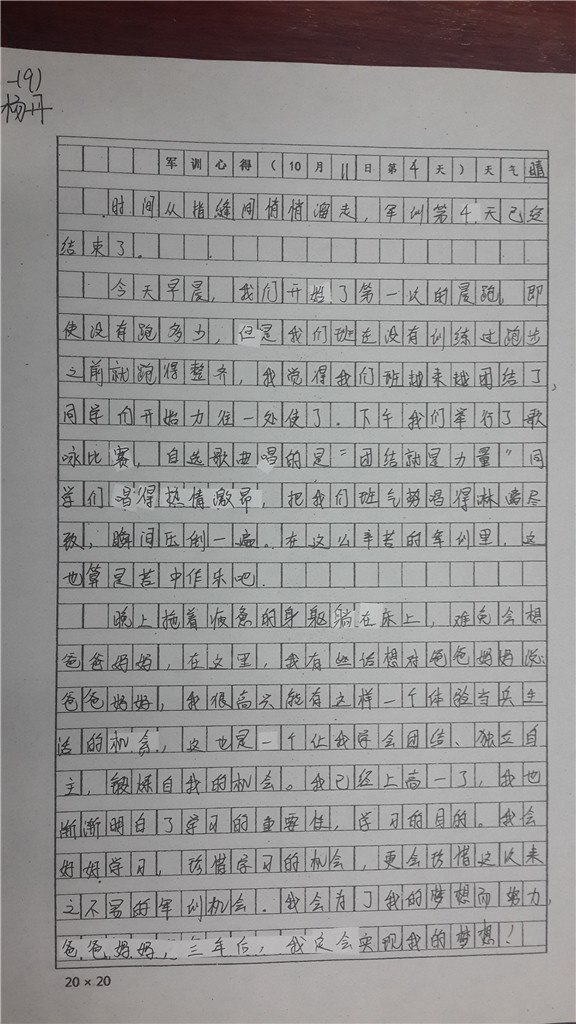 一(9)
杨丹
军训心得(10月11日第4天)天气晴
时间从指缝间悄悄溜走,军训第4天已经
结束了.
今天早晨,我们开始了第一次的晨跑,即
使没有跑多少,但是我们班在没有训练过跑步
之前就跑得整齐,我觉得我们班越来越团结了,
同学们开始力往一处使了.下午我们举行了歌
咏比赛,自选歌曲唱的是"团结就是力量"同
学们唱得热情激昂,把我们班气势唱得淋漓尽
致,瞬间压倒一遍。在这么辛苦的军训里,这
也算是苦中作乐吧.
晚上拖着疲惫的身躯躺在床上,难免会想
爸爸妈妈,在这里,我有些话想对爸爸妈妈说:
爸爸妈妈,我很高兴能有这样一个体验当兵生
活的机会,这也是一个让我学会团结、独立自
主,锻炼自我的机会。我已经上高一了,我也
渐渐明白了学习的重要性,学习的目的。我会
好好学习,珍惜学习的机会,更会珍惜这次来
之不易的军训机会.我会为了我的梦想而努力,
爸爸妈妈,三年后,我定会实现我的梦想!
20×20